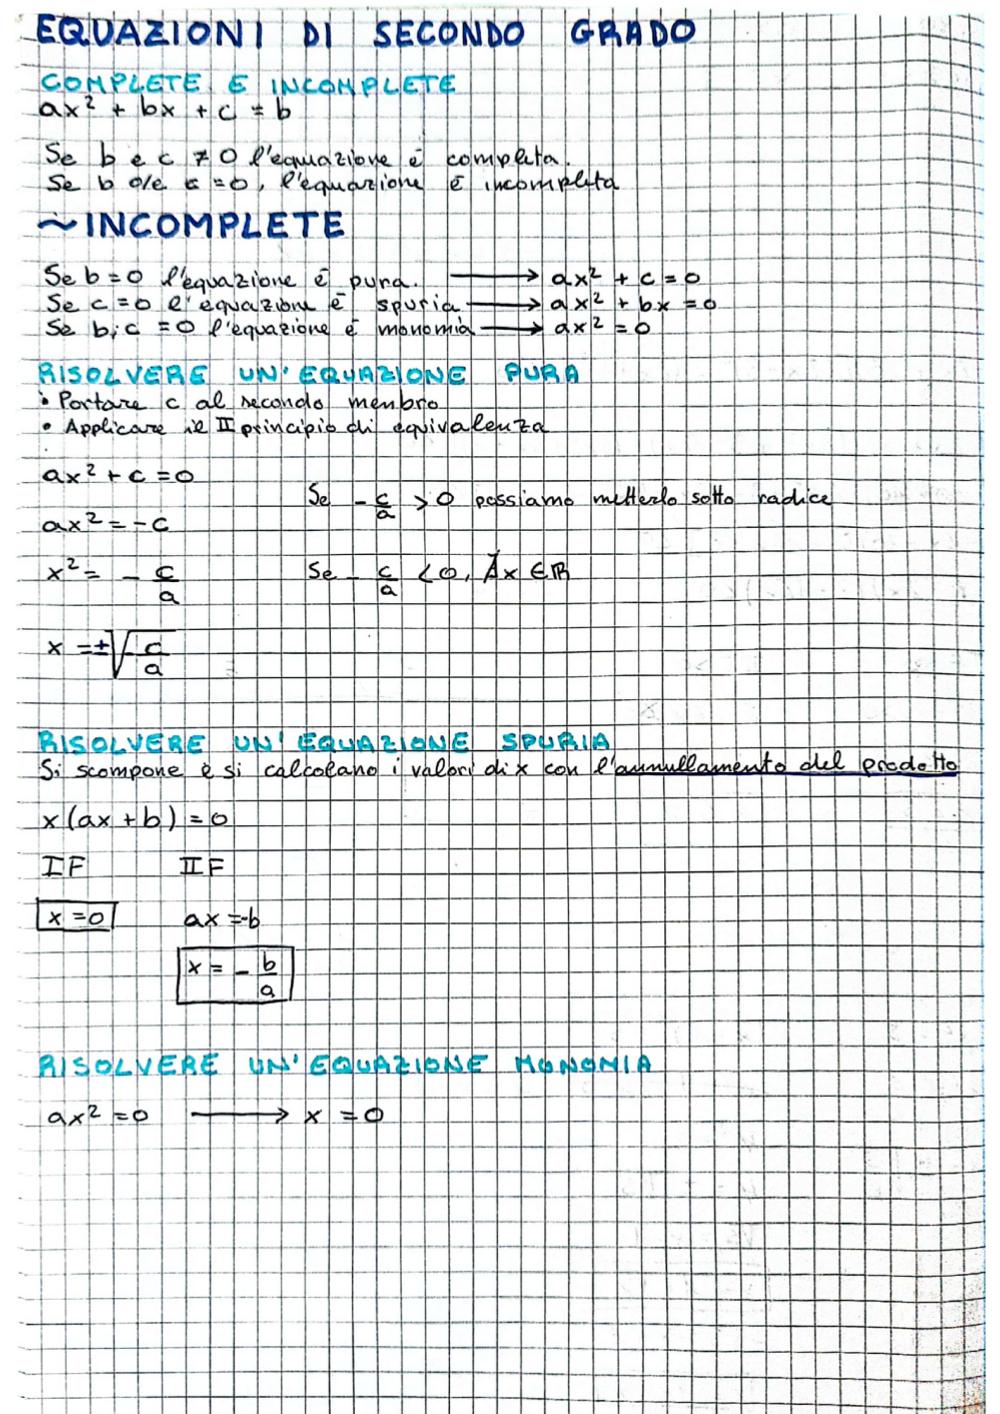 EQUAZIONI DI SECONDO GRADO
COMPLETE E INCOMPLETE
ax² + bx + c = b
Se b e c ≠ 0 l'equazione è completa.
Se b o/e c = 0, l'equazione è incompleta
~INCOMPLETE
Se b = 0 l'equazione è pura. → ax² + c = 0
Se c = 0 l'equazione è spuria → ax² + bx = 0
Se b;c = 0 l'equazione è monomia → ax² = 0
RISOLVERE UN'EQUAZIONE PURA
• Portare c al secondo menbro
• Applicare il II principio di equivalenza
ax² + c = 0
Se - c/a > 0 possiamo metterlo sotto radice
ax² = -c
x² = - c/a
Se - c/a < 0, ∄x ∈ ℝ
x = ±√(-c/a)
RISOLVERE UN'EQUAZIONE SPURIA
Si scompone e si calcolano i valori di x con l'annullamento del prodotto
x(ax + b) = 0
IF IIF
x = 0 ax = -b
x = - b/a
RISOLVERE UN'EQUAZIONE MONOMIA
ax² = 0 → x = 0